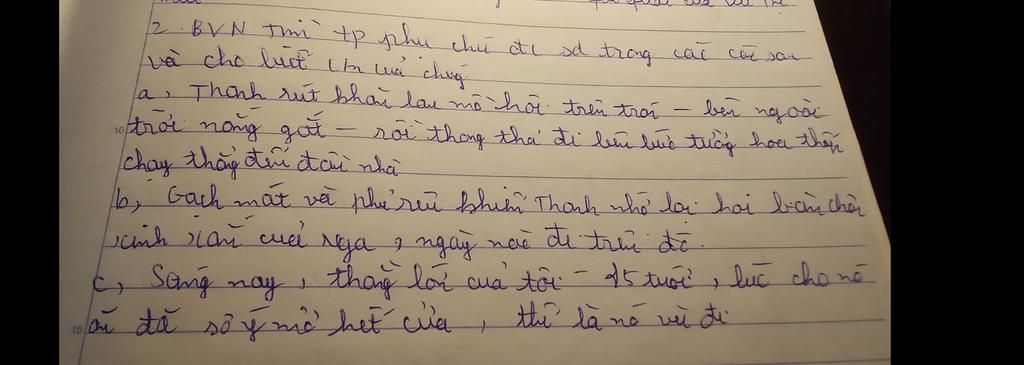 2. BVN Tmì tp phụ chú đc sd trong các câu sau
và cho biết của chúng
a, Thanh rút khăn lau mồ hôi trên trán – bên ngoài
trời nắng gắt – rồi thong thả đi bên bức tường hoa thấp
chạy thẳng đến đầu nhà
b, Gạch mát và phủ rêu khiến Thanh nhớ lại hai bàn chân
xinh xắn của Nga, ngày nào đi trên đó.
c, Sáng nay, thằng lớn của tôi – 15 tuổi, lúc cho nó
ăn đã sơ ý mở hết cửa, thế là nó vù đi